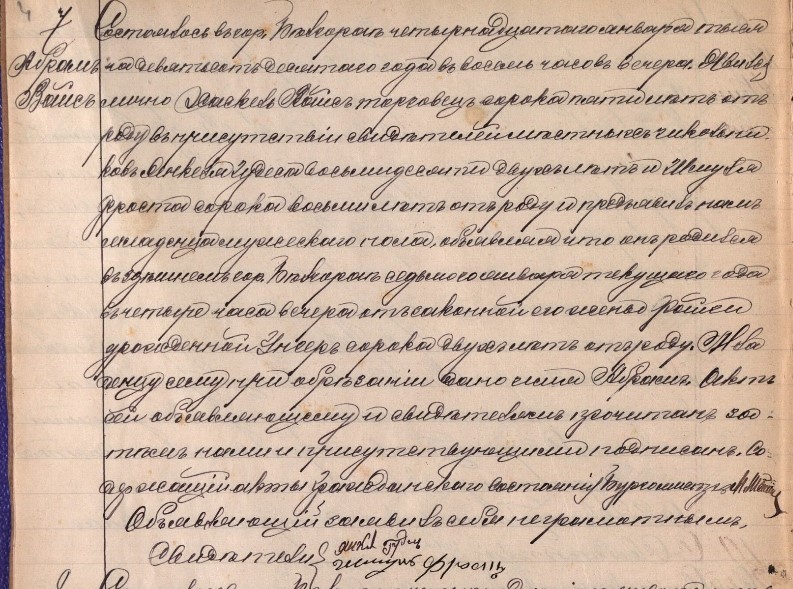 7
Абрамъ
Вайсъ
Состоялось въ гор. четырнадцатаго января тысяча
на девятьсотъ десятаго года въ восемь часовъ вечера. Явился
лично Вайсъ торговецъ сорока пяти лѣтъ отъ
роду въ присутствіи свидѣтелей мѣстныхъ
восьмидесяти двухъ лѣтъ и
Фроста сорока восьми лѣтъ отъ роду и предъявилъ намъ
младенца мужескаго пола, объявляя что онъ родился
въ здѣшнемъ гор. седьмого января текущаго года
въ четыре часа вечера отъ законной его жены Фойги
урожденной Унгеръ сорока двухъ лѣтъ отъ роду. Мла
денцу сему при обрѣзаніи дано имя Абрамъ. Актъ
сей объявляющему и свидѣтелямъ прочитанъ за-
тѣмъ нами и присутствующими подписанъ. Со-
держащій акты гражданскаго состоянія Бургомистръ
Объявляющій заявилъ себя неграмотнымъ,
Свидѣтели
Фростъ